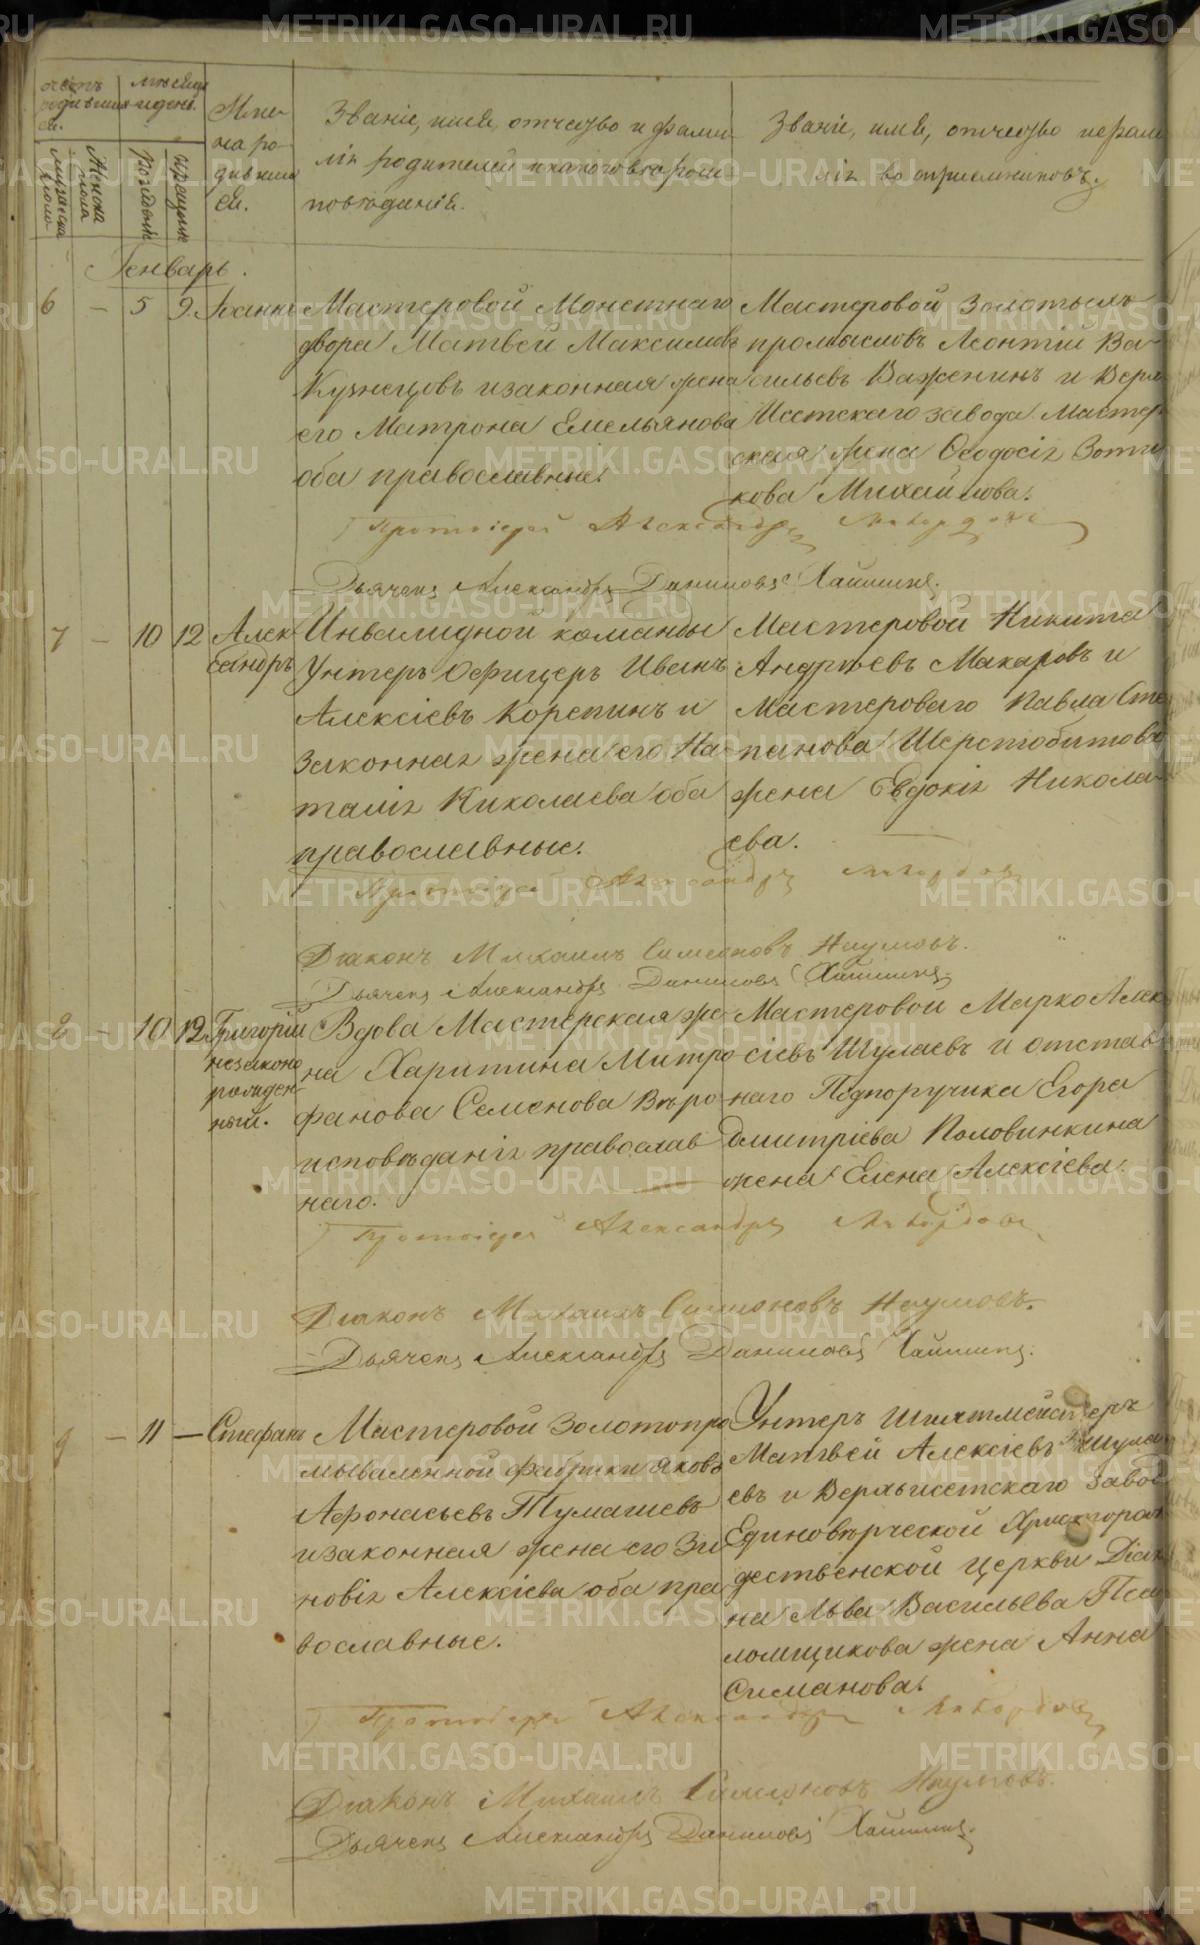 Счетъ родившихся.
Мужеска пола
Женска пола
Мѣсяцъ и день.
Рожденія
Крещенія
Имена родившихся.
Званіе, имя, отчество и фами-
лія родителей и какого вѣроис-
повѣданія.
Званіе, имя, отчество и фами-
лія воспріемниковъ.
Генварь.
6 — 5 9. Іоаннъ
Мастеровой Монетнаго
двора Матвей Максимовъ
Кузнецовъ и законная жена
его Матрона Емельянова
оба православные.
Мастеровой Золотыхъ
промысловъ Леонтій Ва-
сильевъ Важенинъ и Верхъ
Исетскаго завода Мастер
ская жена Ѳеодосія Зоти
кова Михайлова.
Протоіерей Александръ
Дьячекъ Александръ Даниловъ
7 — 10 12 Алек
сандръ
Инвалидной команды
Унтеръ Офицеръ Иванъ
Алексіевъ Корепинъ и
Законная жена его На-
талія Николаева оба
православные.
Мастеровой Никита
Андреевъ Макаровъ и
Мастероваго Павла Сте
панова Шерстобитова
жена Евдокія Никола-
ева.
Протоіерей Александръ
Діаконъ Михаилъ Симеоновъ Наумовъ.
Дьячекъ Александръ Даниловъ
8 — 10 12 Григорій
незаконо
рожден-
ный.
Вдова Мастерская же
на Харитина Митро
фанова Семенова Вѣро
исповѣданія православ
наго.
Мастеровой Марко Алек
сіевъ Шулаевъ и отстав
наго Подпоручика Егора
Дмитріева Половинкина
жена Елена Алексіева.
Протоіерей Александръ
Діаконъ Михаилъ Симеоновъ Наумовъ.
Дьячекъ Александръ Даниловъ
9 — 11 — Стефанъ
Мастеровой Золотопро
мываленной фабрики Яковъ
Афонасьевъ Тумашевъ
и законная жена его Зи
новія Алексіева оба пра
вославные.
Унтеръ Шихтмейстеръ
Матвей Алексіевъ Шула
евъ и Верхъисетскаго завод
Единовѣрческой Христорож
дественской церкви Діак
на Льва Васильева Пса
ломщикова жена Анна
Симанова.
Протоіерей Александръ
Діаконъ Михаилъ Симеоновъ Наумовъ.
Дьячекъ Александръ Даниловъ
METRIKI.GASO-URAL.RU